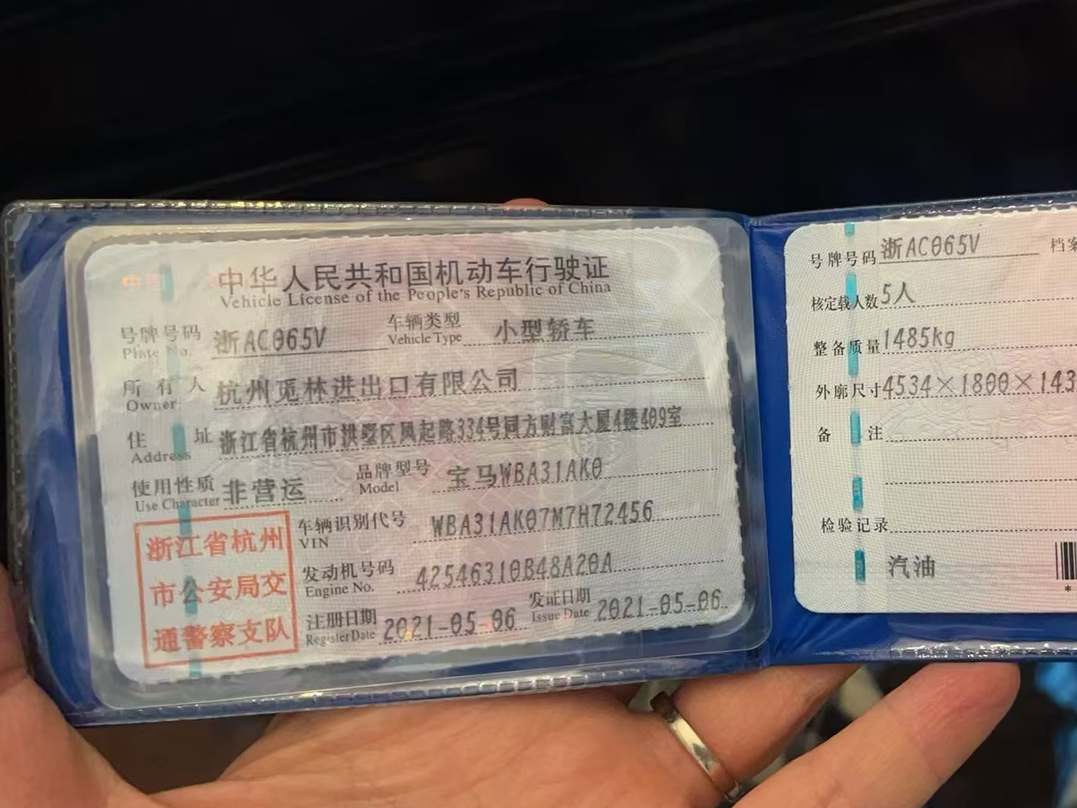 中华人民共和国机动车行驶证
Vehicle License of the People's Republic of China
号牌号码 浙AC065V 车辆类型 小型轿车
Plate No. Vehicle Type
所有人 杭州觅林进出口有限公司
Owner
住址 浙江省杭州市拱墅区凤起路334号同方财富大厦4楼409室
Address
使用性质 非营运 品牌型号 宝马WBA31AK0
Use Character Model
车辆识别代号 WBA31AK07M7H72456
VIN
发动机号码 42546310B48A20A
Engine No.
注册日期 2021-05-06 发证日期 2021-05-06
Register Date Issue Date
浙江省杭州
市公安局交
通警察支队
号牌号码 浙AC065V
核定载人数 5人
整备质量 1485kg
外廓尺寸 4534×1800×143
备注
检验记录
汽油